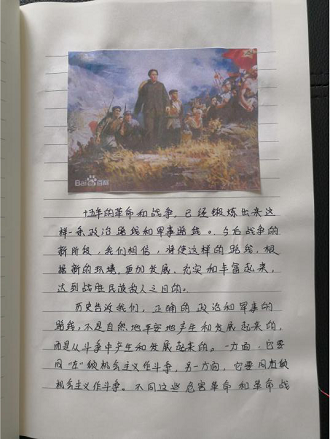 Bai百科
十年的革命和战争,已经锻炼出来这
样一条政治路线和军事路线。今后战争的
新阶段,我们相信,将使这样的路线,根
据新的环境,更加发展、充实和丰富起来,
达到战胜民族敌人之目的。
历史告诉我们,正确的政治和军事的
路线,不是自然地平安地产生和发展起来的,
而是从斗争中产生和发展起来的。一方面,它要
同“左”倾机会主义作斗争,另一方面,它要同右倾
机会主义作斗争。不同这些危害革命和革命战